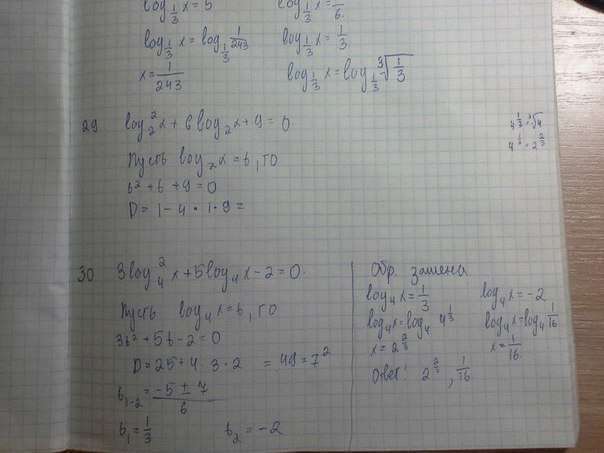 log_{1/3} x = 5
log_{1/3} x = log_{1/3} 1/243
x = 1/243
log_{1/3} x = 1/6
log_{1/3} x = 1/3
log_{1/3} x = log_{1/3} ∛(1/3)
29 log₂² x + 6 log₂ x + 9 = 0
Пусть log₂ x = t, то
t² + t + 9 = 0
D = 1 - 4 · 1 · 9 =
30 3log₄² x + 5log₄ x - 2 = 0
Пусть log₄ x = t, то
3t² + 5t - 2 = 0
D = 25 + 4 · 3 · 2 = 49 = 7²
t₁₋₂ = (-5 ± 7)/6
t₁ = 1/3 t₂ = -2
Обр. замена
log₄ x = 1/3 log₄ x = -2
log₄ x = log₄ 4^{1/3} log₄ x = log₄ 1/16
x = 2^{2/3} x = 1/16
Ответ: 2^{2/3}, 1/16
4^{1/3} = ∛4
4^{1/3} = 2^{2/3}